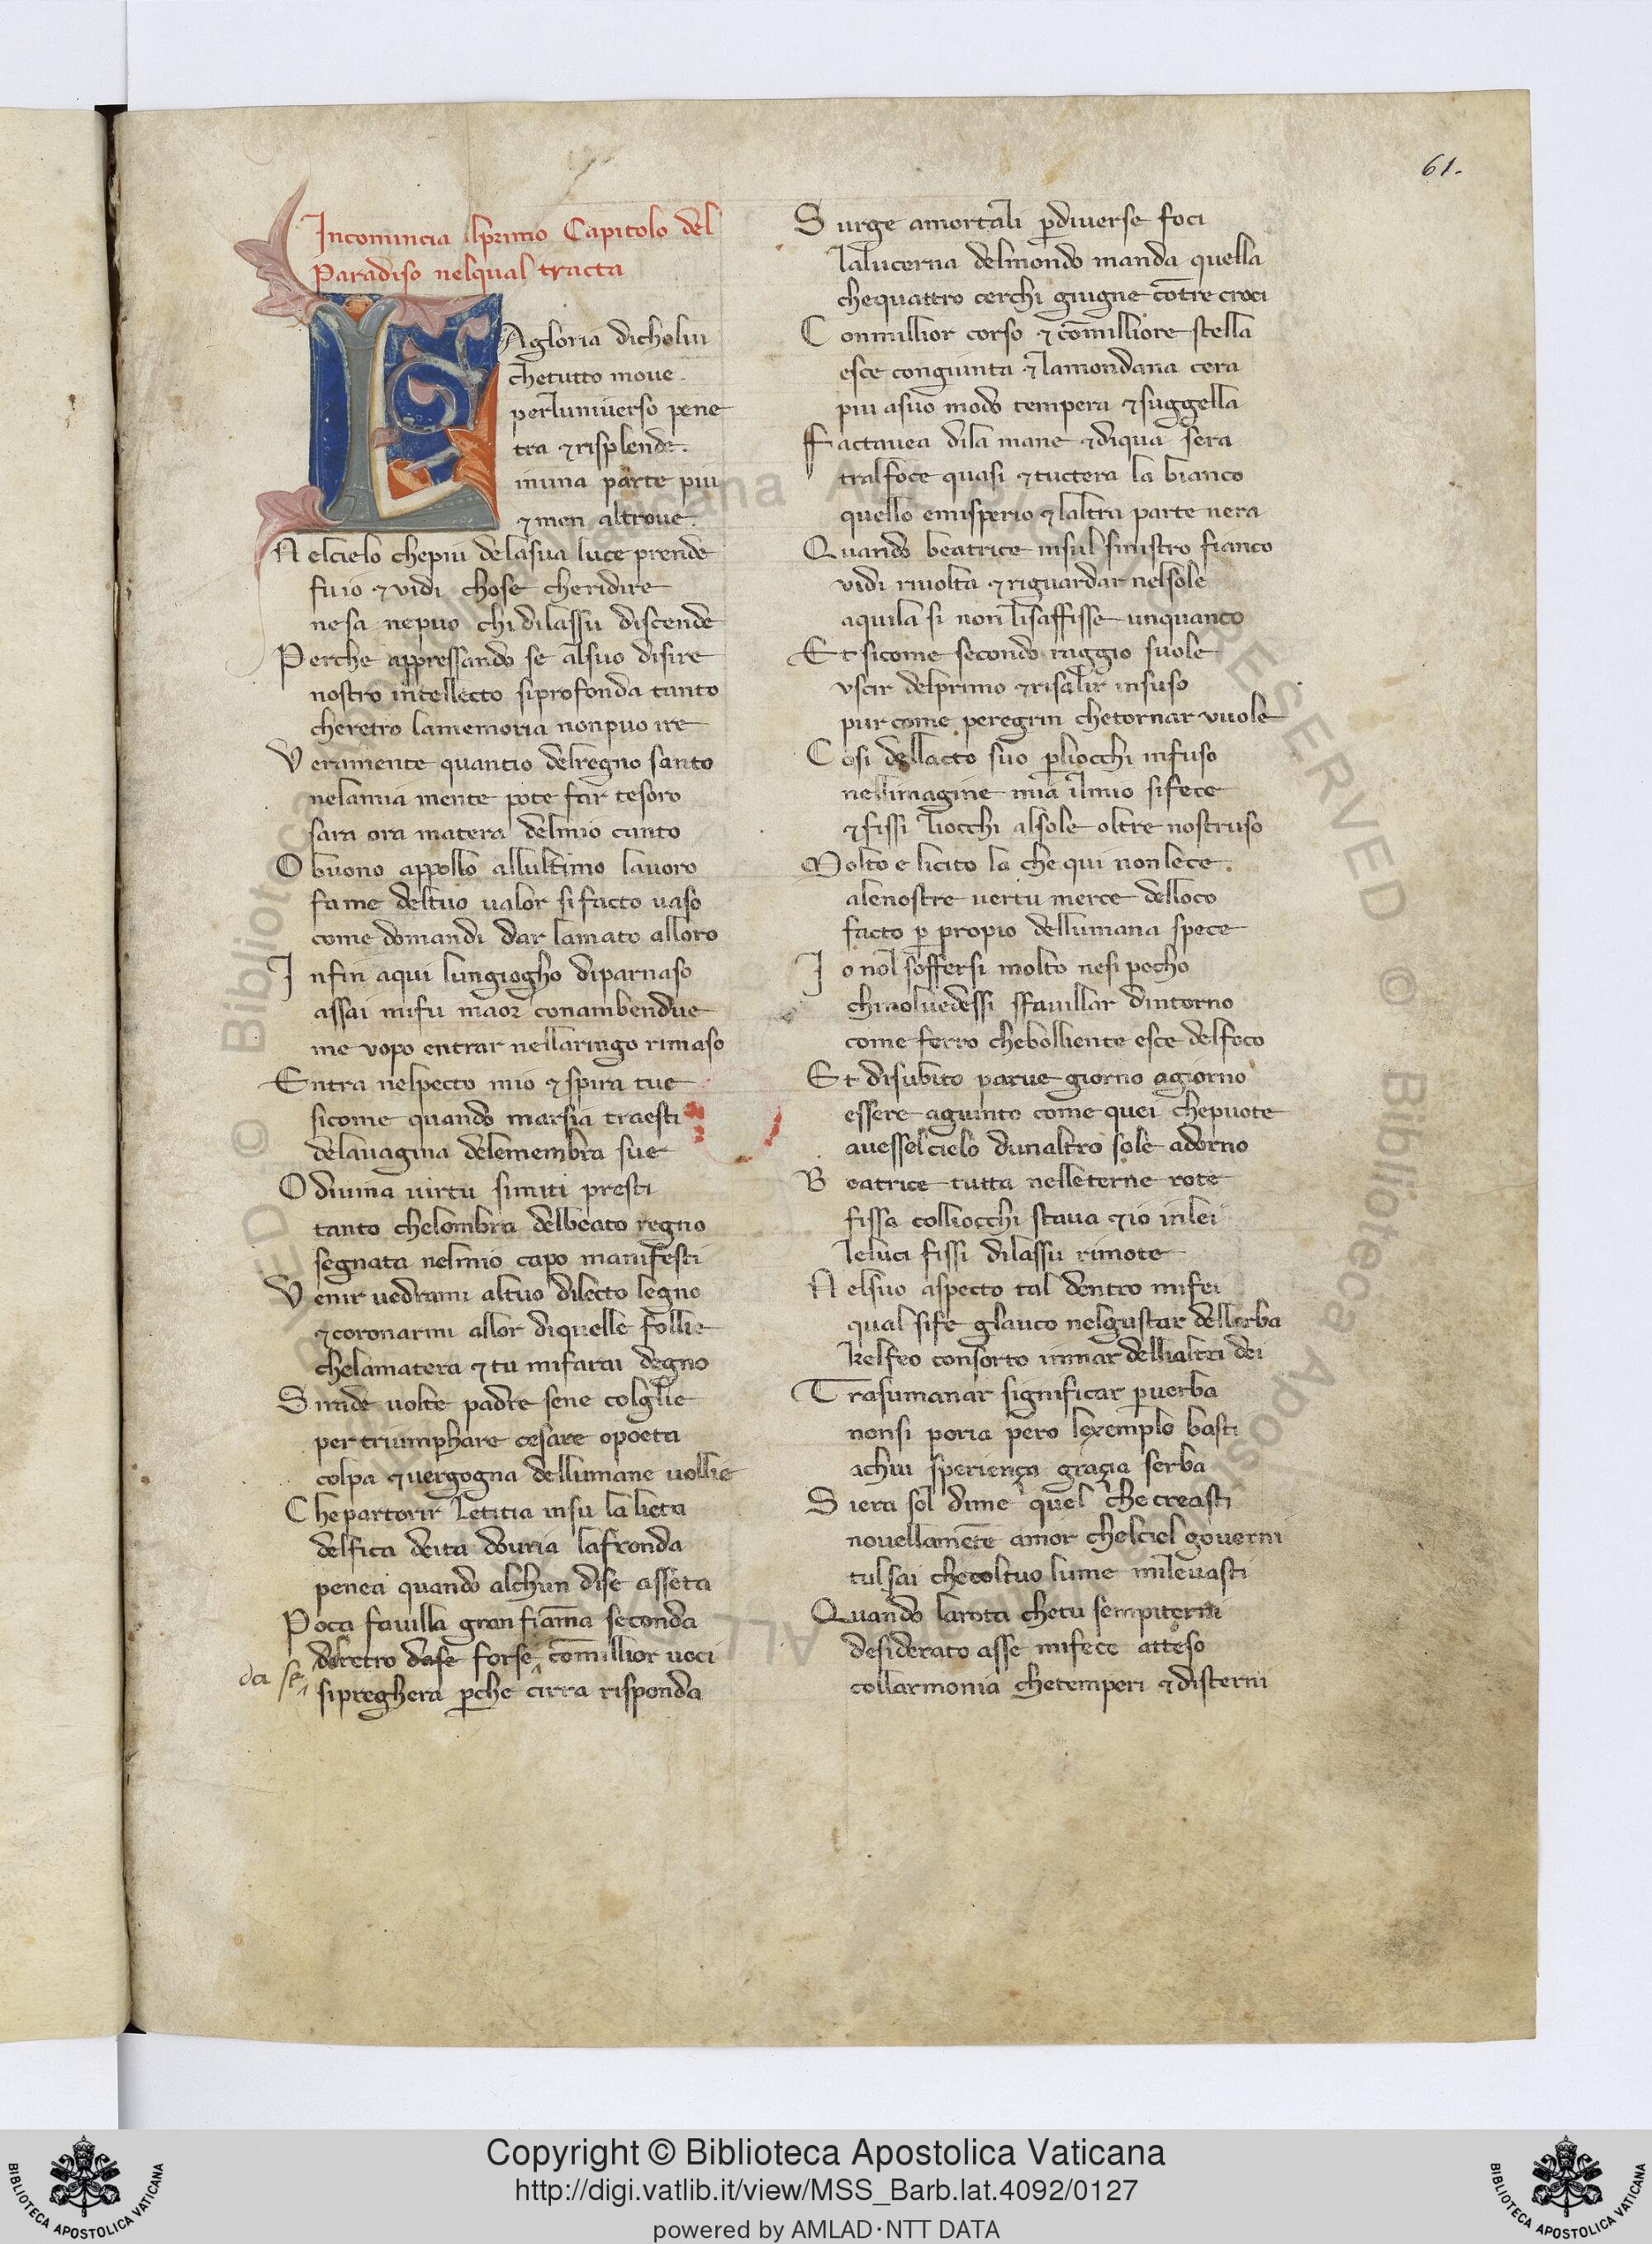 61.
Incomincia ilprimo Capitolo del
Paradiso nelqual tracta
LAgloria dicholui
chetutto moue.
perluniuerso pene
tra ⁊risplende.
inuna parte piu
⁊men altroue.
Nelcielo chepiu delasua luce prende
fuio ⁊vidi chose cheridire
nesa nepuo chi dilassu discende
Perche appressando se alsuo disire
nostro intellecto siprofonda tanto
cheretro lamemoria nonpuo ire
Veramente quantio delregno santo
nelamia mente pote far tesoro
sara ora matera delmio canto
O buono appollo allultimo lauoro
fame deltuo ualor sifacto uaso
come domandi dar lamato alloro
Infin aqui lungiogho diparnaso
assai mifu maor conambendue
me vopo entrar nellaringo rimaso
Entra nelpecto mio ⁊spira tue
sicome quando marsia traesti
delauagina delemembra sue
O diuina uirtu simiti presti
tanto chelombra delbeato regno
segnata nelmio capo manifesti
Venir uedrami altuo dilecto legno
⁊coronarmi allor diquelle follie
chelamatera ⁊tu mifarai degno
Sirade uolte padre sene coglie
per triumphare cesare opoeta
colpa ⁊uergogna dellumane uollie
Chepartorir letitia insu la lieta
delfica deita douria lafronda
penea quando alchun dise asseta
Poca fauilla gran fiāma seconda
diretro dase forse cōmillior uoci
da se
sipreghera ꝑche cirra risponda
Surge amortali ꝑdiuerse foci
lalucerna delmondo manda quella
chequattro cerchi giugne cōtre croci
Conmillior corso ⁊cōmilliore stella
esce congiunta ⁊lamondana cera
piu asuo modo tempera ⁊suggella
Factauea dila mane ⁊diqua sera
tralfoce quasi ⁊tuctera la bianco
quello emisperio ⁊laltra parte nera
Quando beatrice insul sinistro fianco
vidi riuolta ⁊riguardar nelsole
aquila si non lisaffisse unquanco
Et sicome secondo raggio suole
vscir delprimo ⁊risalir insuso
pur come peregrin chetornar vuole
Cosi dellacto suo ꝑliocchi infuso
nellimagine mia ilmio sifece
⁊fissi liocchi alsole oltre nostruso
Molto e licito la che qui non lece.
alenostre uertu merce delloco
facto ꝑ propio dellumana spece
Io nol soffersi molto nesi pocho
chinoluedessi sfauillar dintorno
come ferro chebolliente esce delfoco
Et disubito parue giorno agiorno
essere agiunto come quei chepuote
auesselcielo dunaltro sole adorno
Beatrice tutta nelleterne rote
fissa colliocchi staua ⁊io inlei
leluci fissi dilassu rimote
Nelsuo aspecto tal dentro mifei
qual sife glauco nelgustar dellerba
kelfeo consorto inmar dellialtri dei
Trasumanar significar ꝑuerba
nonsi poria pero lexemplo basti
achui sperienҫa graҫia serba
Siera sol dime quel che creasti
nouellamēte amor chelciel gouerni
tulsai checoltuo lume mileuasti
Quando larota chetu sempiterni
desiderato asse mifece atteso
collarmonia chetemperi ⁊discerni
Copyright © Biblioteca Apostolica Vaticana
http://digi.vatlib.it/view/MSS_Barb.lat.4092/0127
powered by AMLAD·NTT DATA
BIBLIOTECA APOSTOLICA VATICANA
BIBLIOTECA APOSTOLICA VATICANA